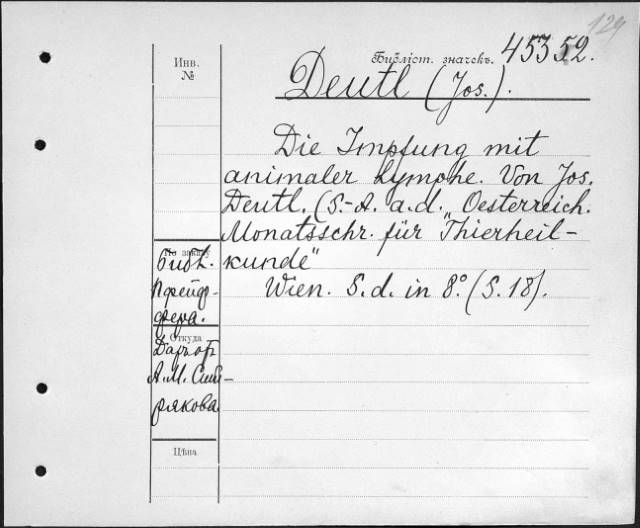 129
Инв.
№
Библіот. значекъ. 45352.
Deutl (Jos.).
Die Impfung mit
animaler Lymphe. Von Jos.
Deutl. (S.-A. a.d. Oesterreich.
Monatsschr. für "Thierheil-
kunde"
Wien. S.d. in 8.° (S. 18).
По заказу
Библ.
Пфейф-
фера.
Откуда
Даръ от
А.М. Сиби-
рякова.
Цѣна